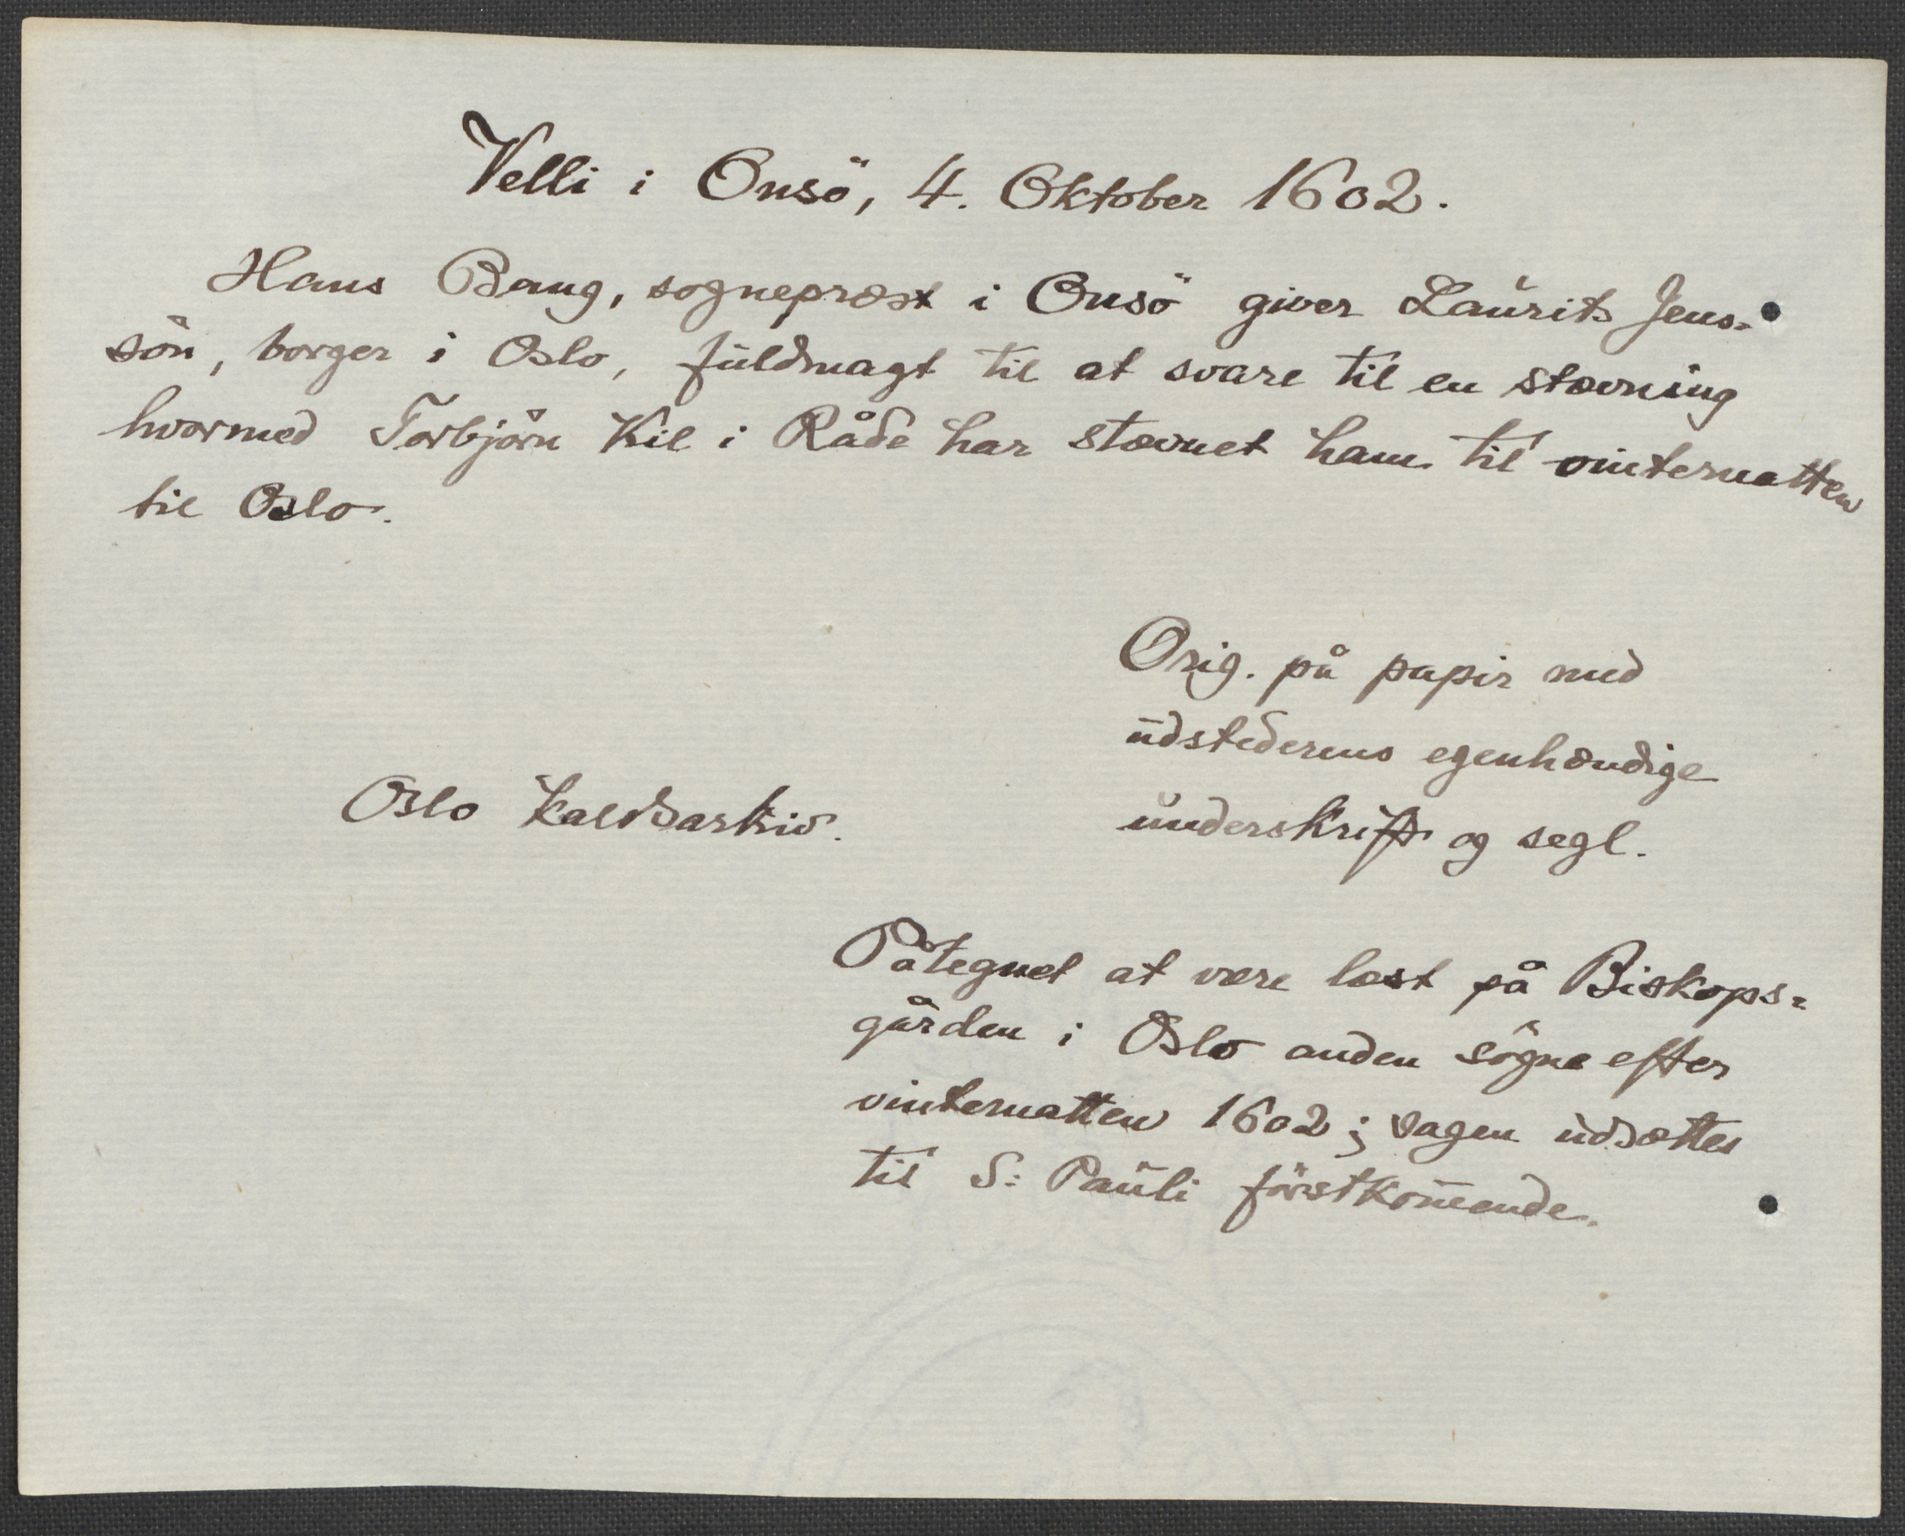 Velli i Onsö, 4. Oktober 1602.
Hans Bang, sognepræst i Onsö giver Laurits Jens-
sön, borger i Oslo, fuldmagt til at svare til en stævning
hvormed Torbjörn Kil i Råde har stævnet ham til vinternatten
til Oslo.
Orig. på papir med
udstederens egenhændige
underskrift og segl.
Oslo kaldsarkiv.
Påtegnet at være læst på Biskops-
gården i Oslo anden sögne efter
vinternatten 1602; sagen udsættes
til S: Pauli förstkom̄ende.